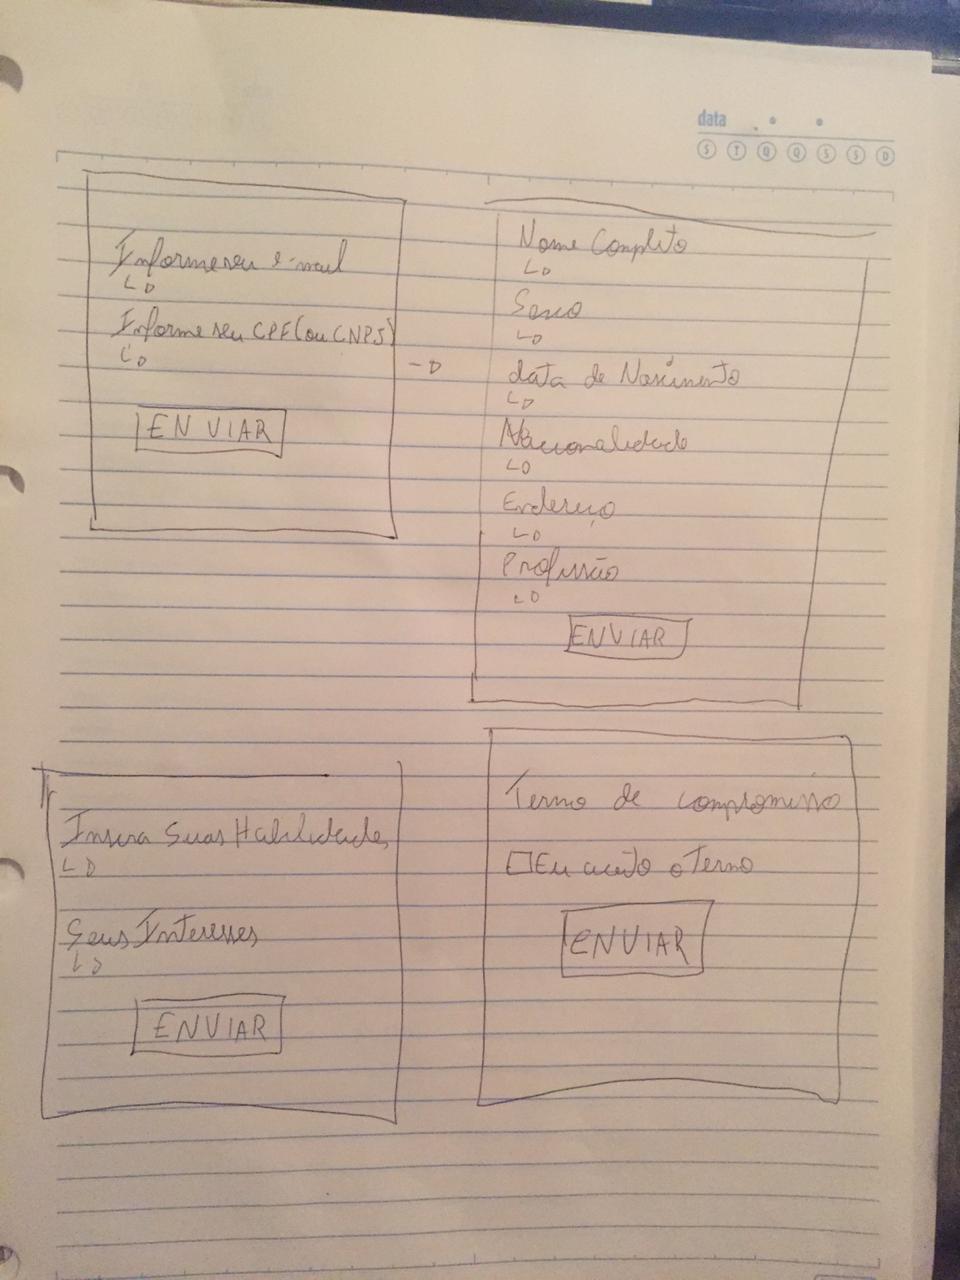 data
S T Q Q S S D
Informe seu e-mail
Informe seu CPF (ou CNPJ)
ENVIAR
Nome Completo
Sexo
data de Nascimento
Nacionalidade
Endereço
Profissão
ENVIAR
Insira Suas Habilidades
Seus Interesses
ENVIAR
Termo de compromisso
Eu aceito o Termo
ENVIAR